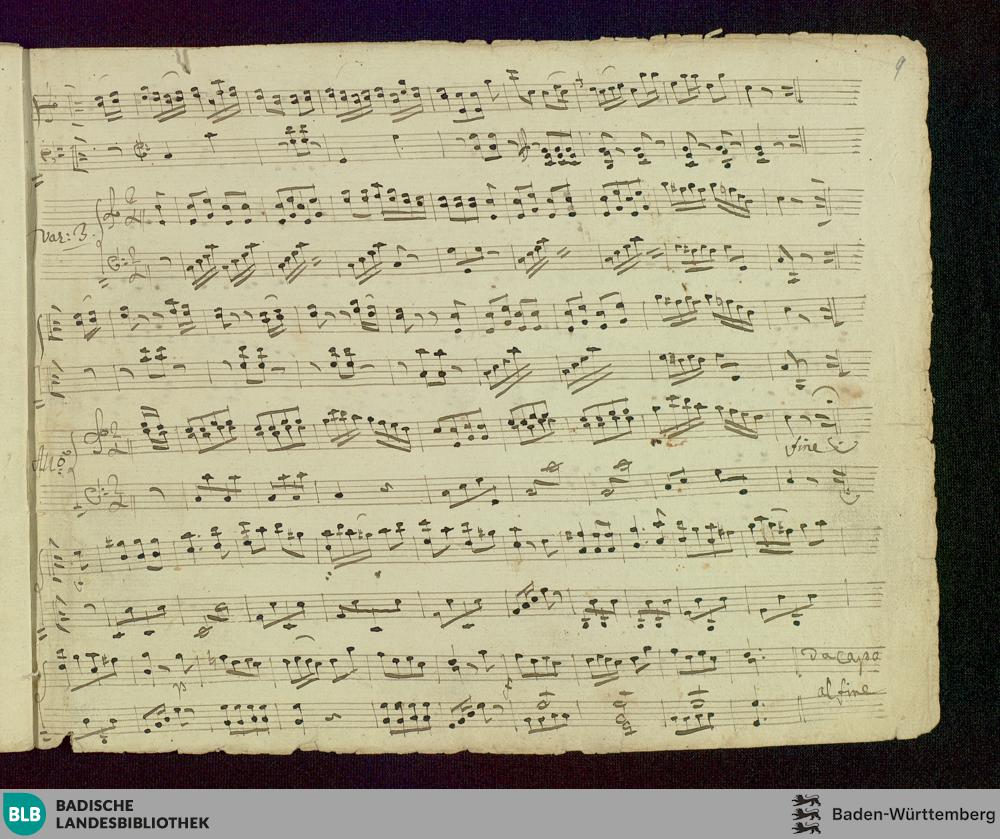 9
Var: 3.
fine
All:º
Da Capo
al fine
BLB
BADISCHE
LANDESBIBLIOTHEK
Baden-Württemberg